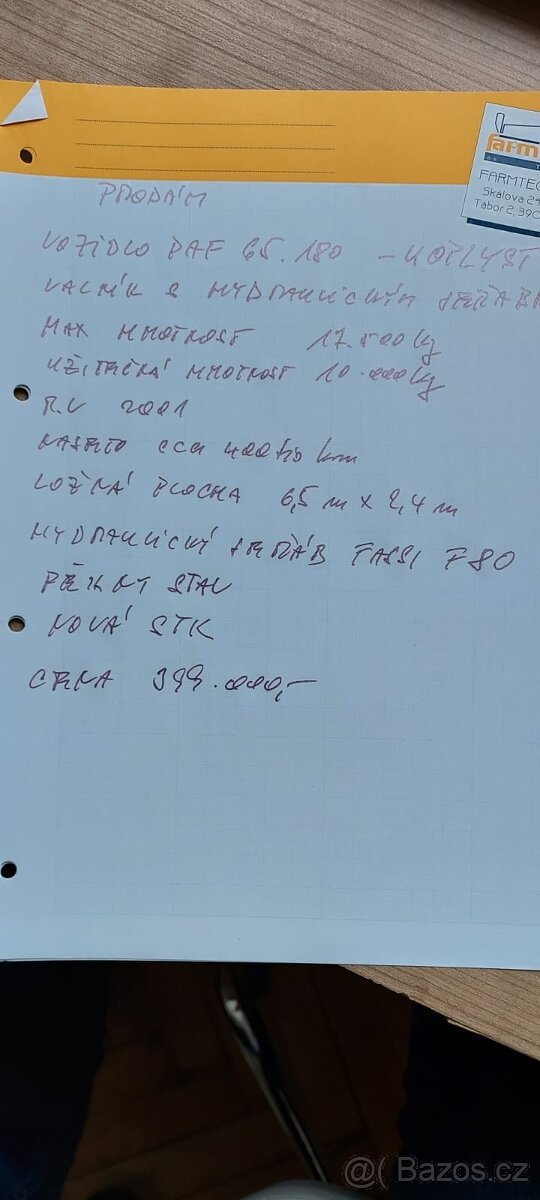 farm
FARMTEC
Skálova 24
Tábor 2, 390
PRODÁM
VOZIDLO DAF 65.180 -
VALNÍK S HYDRAULICKÝM
MAX HMOTNOST 17.500 kg
UŽITEČNÁ HMOTNOST 10.000 kg
R.V 2001
NAJETO cca km
LOŽNÁ PLOCHA 6,5 m x 2,4 m
HYDRAULICKÝ JEŘÁB FASSI F80
PĚKNÝ STAV
NOVÁ STK
CENA 399.000,-
@( Bazos.cz